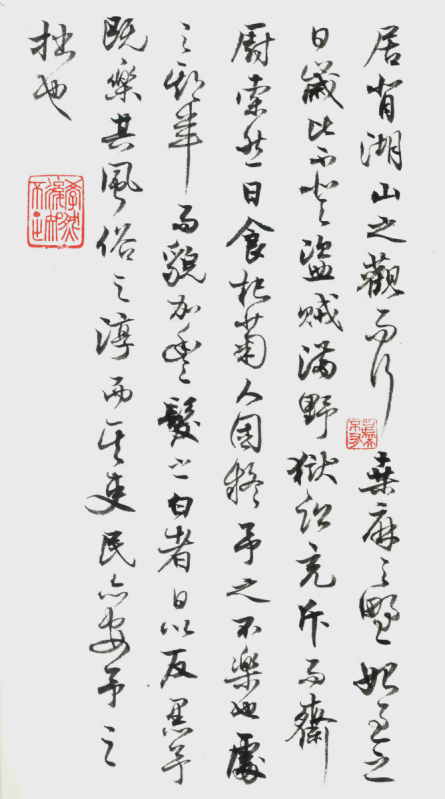 居背湖山之觀而行桑麻之野始至之
日歲比不登盜賊滿野獄訟充斥而齋
廚索然日食杞菊人固疑予之不樂也處
之期年而貌加豐髮之白者日以反黑予
既樂其風俗之淳而其吏民亦安予之
拙也